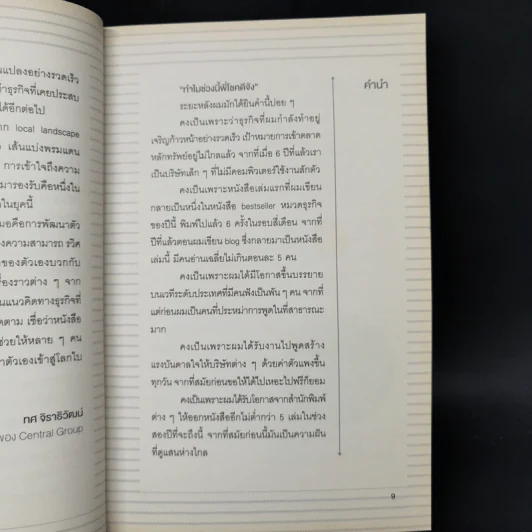 นแปลงอย่างรวดเร็ว
าธุรกิจที่เคยประสบ
ได้อีกต่อไป
าก local landscape
เส้นแบ่งพรมแดน
การเข้าใจถึงความ
มารองรับคือหนึ่งใน
ในยุคนี้
มอคือการพัฒนาตัว
งความสามารถ
ของตัวเองบวกกับ
องราวต่าง ๆ จาก
นแนวคิดทางธุรกิจที่
ดตาม เชื่อว่าหนังสือ
ช่วยให้หลาย ๆ คน
าตัวเองเข้าสู่โลกใบ
ทศ จิราธิวัฒน์
ของ Central Group
คำนำ
"ทำไมช่วงนี้พี่โชคดีจัง"
ระยะหลังผมมักได้ยินคำนี้บ่อย ๆ
คงเป็นเพราะว่าธุรกิจที่ผมกำลังทำอยู่
เจริญก้าวหน้าอย่างรวดเร็ว เป้าหมายการเข้าตลาด
หลักทรัพย์อยู่ไม่ไกลแล้ว จากที่เมื่อ 6 ปีที่แล้วเรา
เป็นบริษัทเล็ก ๆ ที่ไม่มีคอมพิวเตอร์ใช้งานสักตัว
คงเป็นเพราะหนังสือเล่มแรกที่ผมเขียน
กลายเป็นหนึ่งในหนังสือ bestseller หมวดธุรกิจ
ของปีนี้ พิมพ์ไปแล้ว 6 ครั้งในรอบสี่เดือน จากที่
ปีที่แล้วตอนผมเขียน blog ซึ่งกลายมาเป็นหนังสือ
เล่มนี้ มีคนอ่านเฉลี่ยไม่เกินตอนละ 5 คน
คงเป็นเพราะผมได้มีโอกาสขึ้นบรรยาย
บนเวทีระดับประเทศที่มีคนฟังเป็นพัน ๆ คน จากที่
แต่ก่อนผมเป็นคนที่ประหม่าการพูดในที่สาธารณะ
มาก
คงเป็นเพราะผมได้รับงานไปพูดสร้าง
แรงบันดาลใจให้บริษัทต่าง ๆ ด้วยค่าตัวแพงขึ้น
ทุกวัน จากที่สมัยก่อนขอให้ได้ไปเหอะไปฟรีก็ยอม
คงเป็นเพราะผมได้รับโอกาสจากสำนักพิมพ์
ต่าง ๆ ให้ออกหนังสืออีกไม่ต่ำกว่า 5 เล่มในช่วง
สองปีที่จะถึงนี้ จากที่สมัยก่อนนี้มันเป็นความฝัน
ที่ดูแสนห่างไกล
9